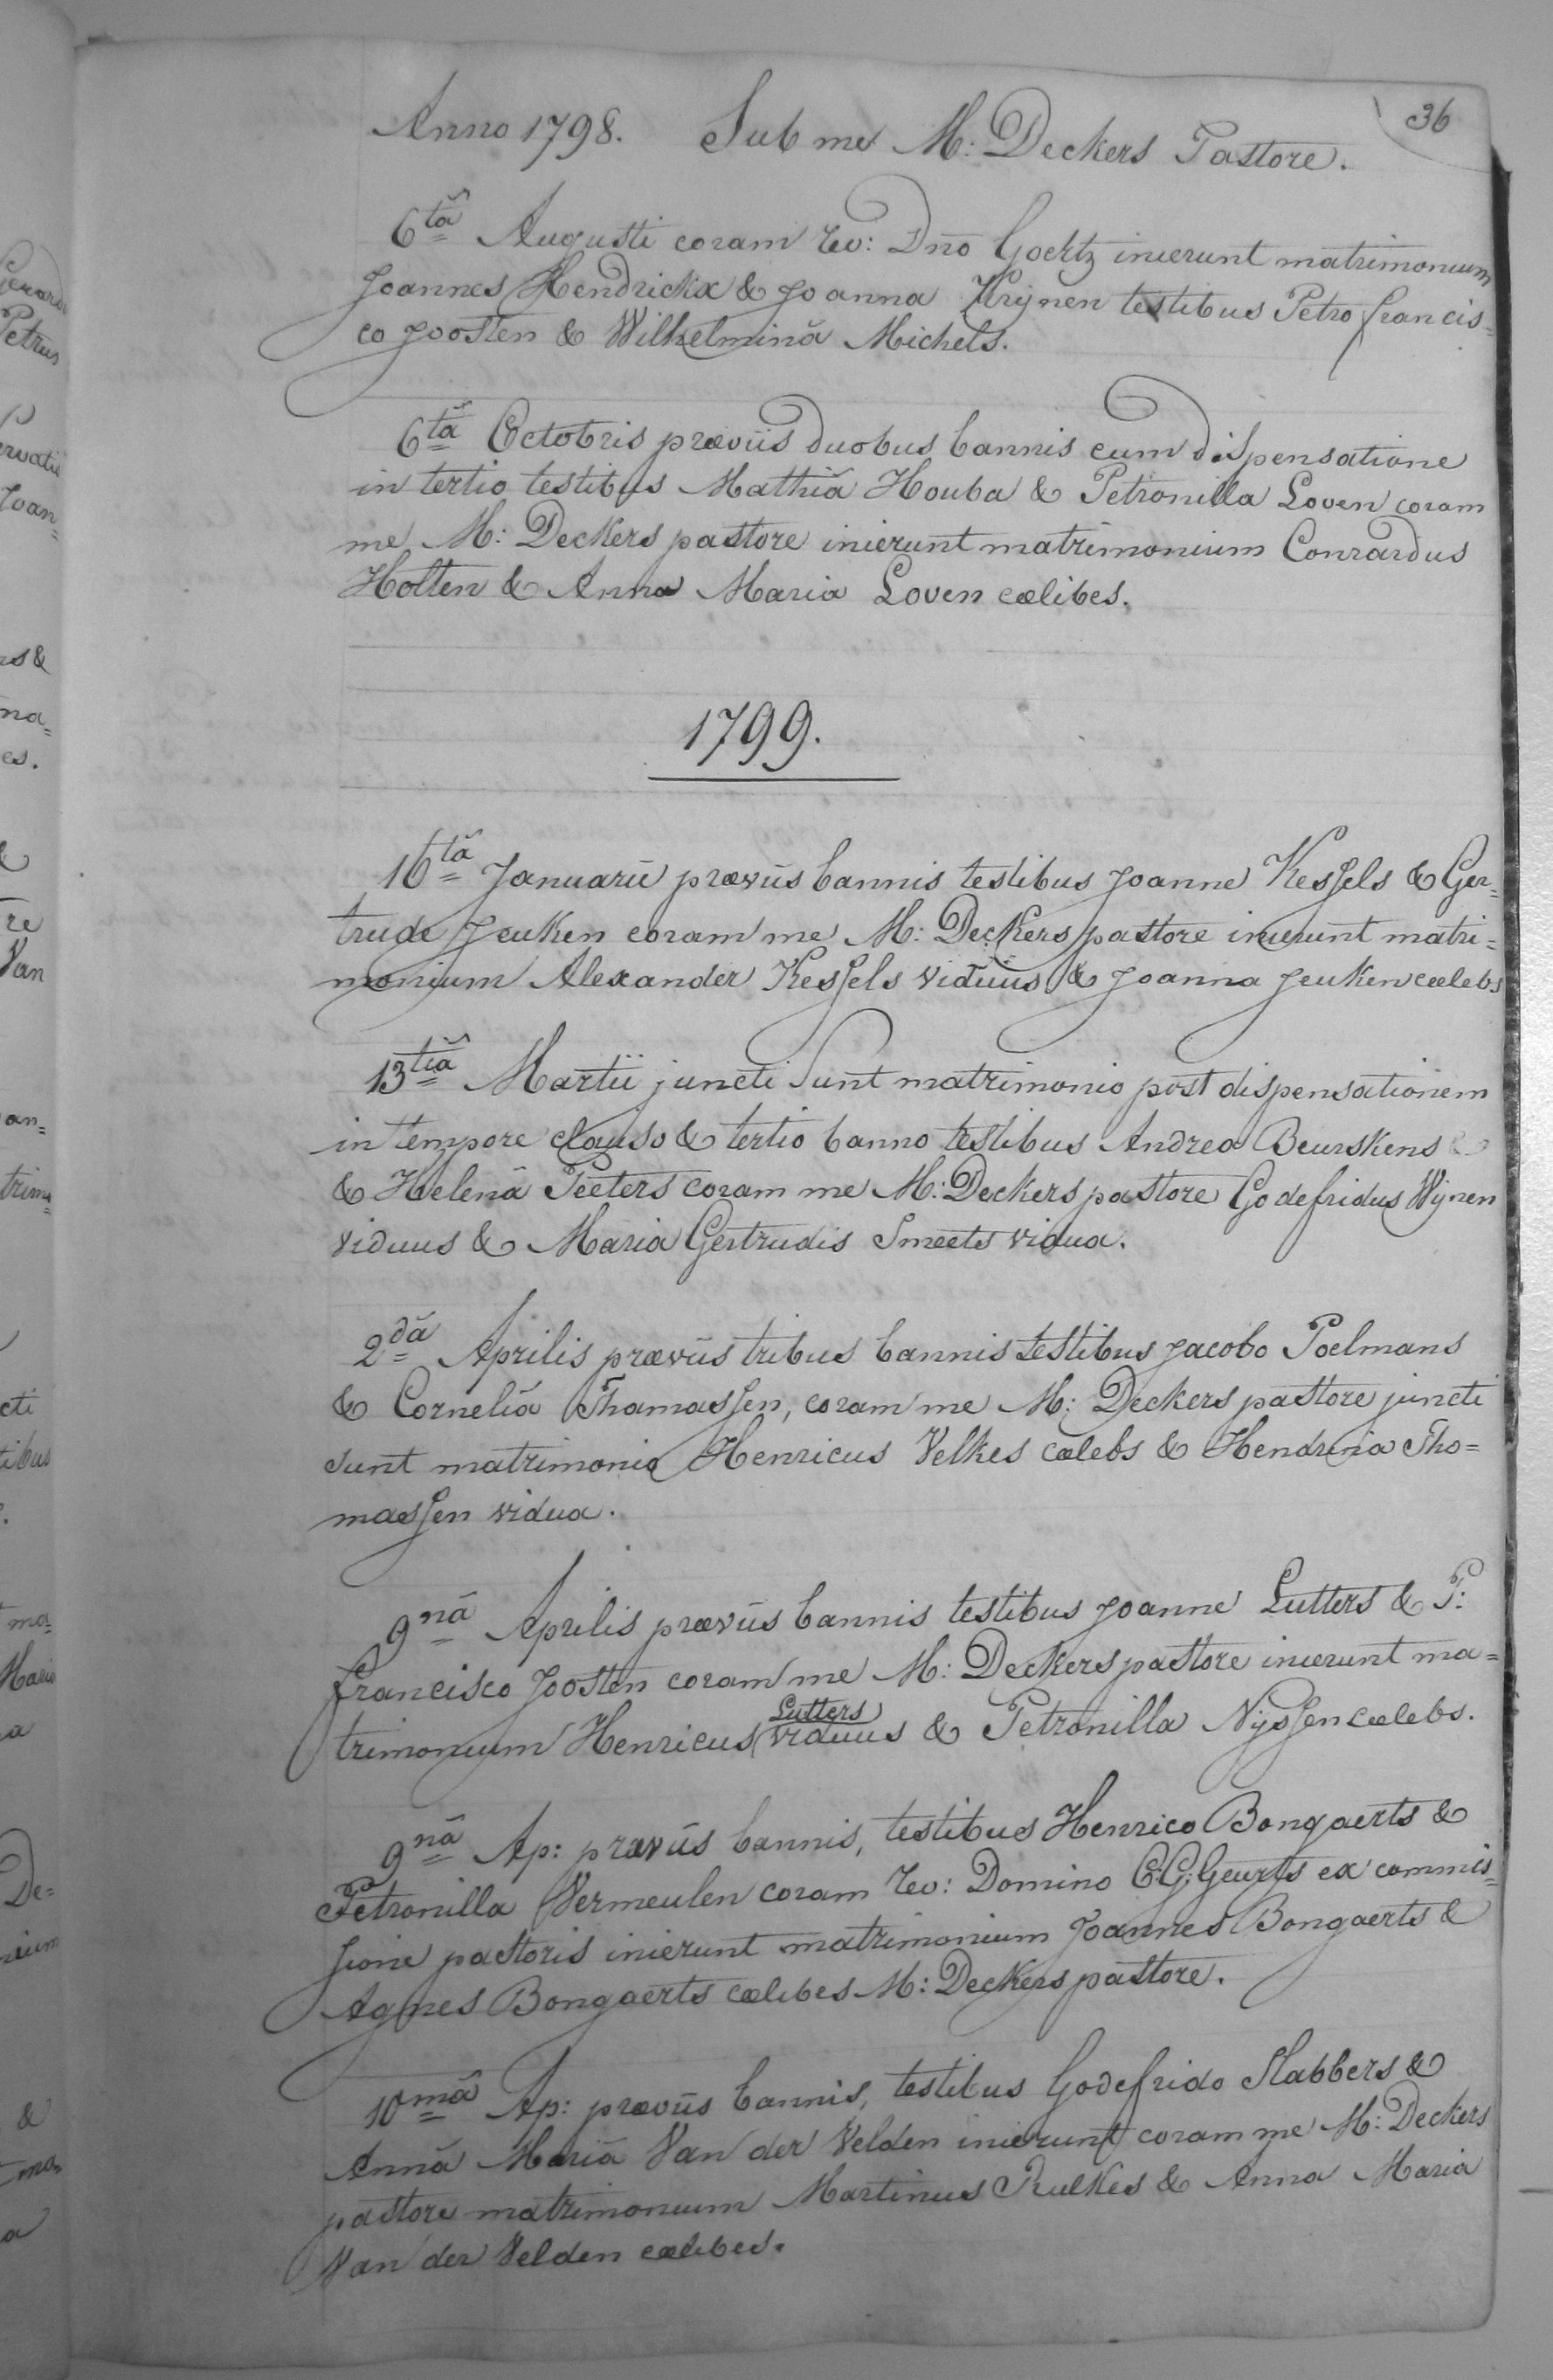 36
Anno 1798. Sub me M: Deckers Pastore.
6tâ Augusti coram Rev: Dno Goertz inierunt matrimonium
Joannes Hendrickx & Joanna Krijnen testibus Petro Francis=
co Joosten & Wilhelminâ Michels.
6tâ Octobris præviis duobus bannis cum dispensatione
in tertio testibus Mathiâ Houba & Petronilla Loven coram
me M: Deckers pastore inierunt matrimonium Conrardus
Holten & Anna Maria Loven cælibes.
1799.
16tâ Januarii præviis bannis testibus Joanne Kessels & Ger=
trude Jeuken coram me M: Deckers pastore inierunt matri=
monium Alexander Kessels viduus & Joanna Jeuken cælebs
13tiâ Martii juncti sunt matrimonio post dispensationem
in tempore clauso & tertio banno testibus Andrea Beurskens &
& Helenâ Peeters coram me M: Deckers pastore Godefridus Wijnen
viduus & Maria Gertrudis Smeets vidua.
2dâ Aprilis præviis tribus bannis testibus Jacobo Poelmans
& Corneliâ Thamassen, coram me M: Deckers pastore juncti
sunt matrimonio Henricus Velkes cælebs & Hendrina Tho=
massen vidua.
9nâ Aprilis præviis bannis testibus Joanne Lutters & P:
Francisco Joosten coram me M: Deckers pastore inierunt ma=
trimonium Henricus Lutters viduus & Petronilla Nijssen cælebs.
9nâ Ap: præviis bannis, testibus Henrico Bongaerts &
Petronilla Vermeulen coram Rev: Domino C:G: Geurts ex commis=
sione pastoris inierunt matrimonium Joannes Bongaerts &
Agnes Bongaerts cælibes M: Deckers pastore.
10mâ Ap: præviis bannis, testibus Godefrido Slabbers &
Annâ Mariâ Van der Velden inierunt coram me M: Deckers
pastore matrimonium Martinus Rulkes & Anna Maria
Van der Velden cælibes.